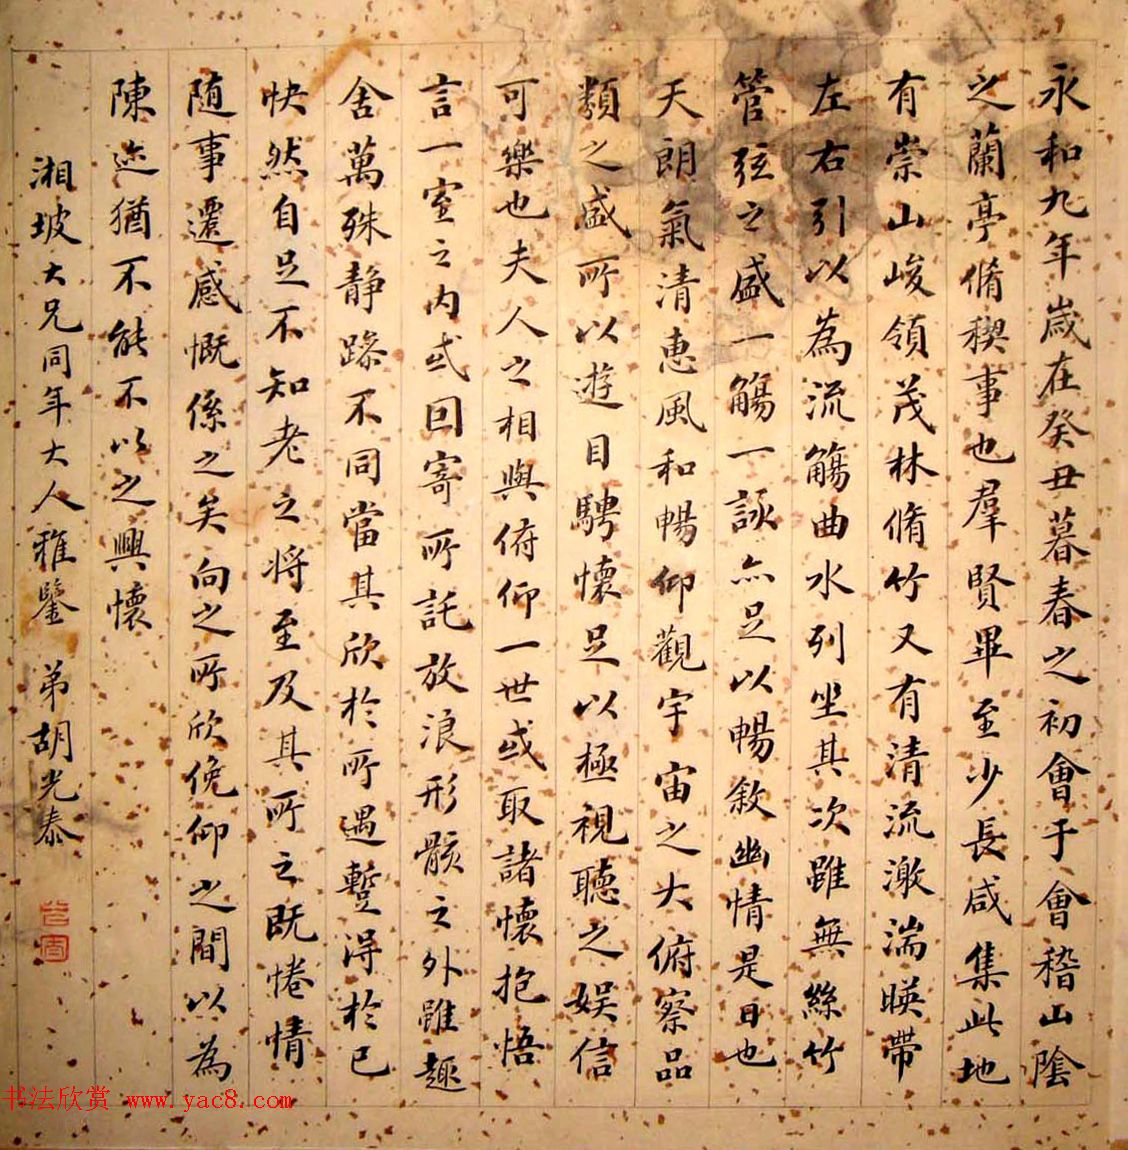 永和九年歲在癸丑暮春之初會于會稽山陰
之蘭亭脩稧事也羣賢畢至少長咸集此地
有崇山峻領茂林脩竹又有清流激湍暎帶
左右引以為流觴曲水列坐其次雖無絲竹
管弦之盛一觴一詠亦足以暢敘幽情是日也
天朗氣清惠風和暢仰觀宇宙之大俯察品
類之盛所以遊目騁懷足以極視聽之娱信
可樂也夫人之相與俯仰一世或取諸懷抱悟
言一室之內或回寄所託放浪形骸之外雖趣
舍萬殊静躁不同當其欣於所遇蹔得於己
快然自足不知老之將至及其所之既惓情
随事遷感慨係之矣向之所欣俛仰之間以為
陳迹猶不能不以之興懷
湘坡大兄同年大人雅鑒 弟胡光泰
书法欣赏 www.yac8.com